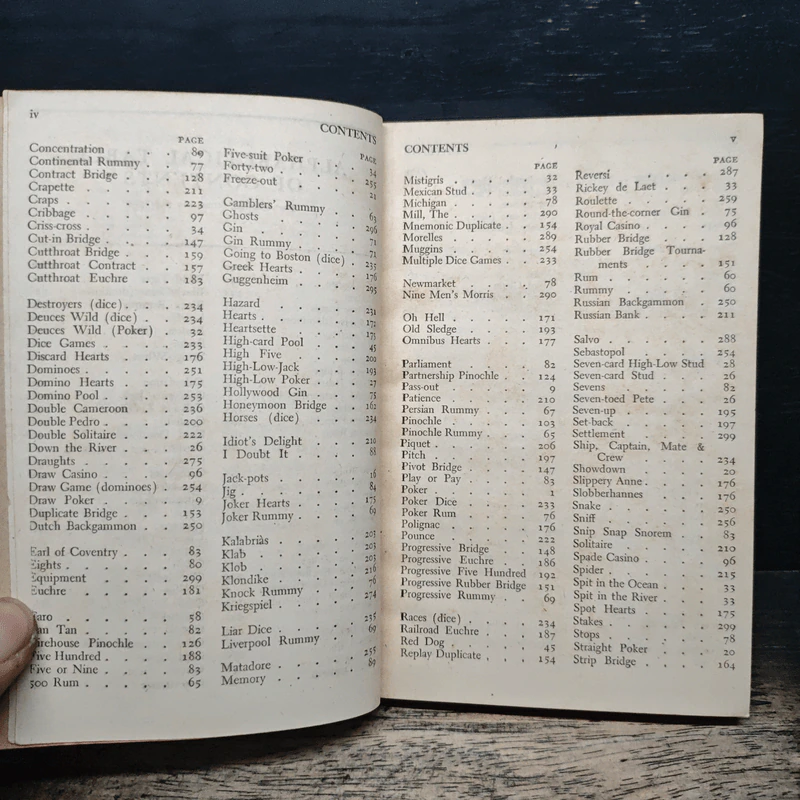 iv
CONTENTS
PAGE
Concentration . . . 89
Continental Rummy . . 77
Contract Bridge . . 128
Crapette . . . . 211
Craps . . . . 223
Cribbage . . . . 97
Criss-cross . . . 34
Cut-in Bridge . . . 147
Cutthroat Bridge . . 159
Cutthroat Contract . . 157
Cutthroat Euchre . . 183
Destroyers (dice) . . . 234
Deuces Wild (dice) . . 234
Deuces Wild (Poker) . 32
Dice Games . . . 233
Discard Hearts . . . 176
Dominoes . . . . 251
Domino Hearts . . . 175
Domino Pool . . . 253
Double Cameroon . . 236
Double Pedro . . . 200
Double Solitaire . . . 222
Down the River . . . 26
Draughts . . . . 275
Draw Casino . . . 96
Draw Game (dominoes) . 254
Draw Poker . . . 9
Duplicate Bridge . . 153
Dutch Backgammon . . 250
Earl of Coventry . . 83
Eights . . . . 80
Equipment . . . 299
Euchre . . . . 181
Faro . . . . 58
Fan Tan . . . . 82
Firehouse Pinochle . . 126
Five Hundred . . . 188
Five or Nine . . . 83
500 Rum . . . . 65
PAGE
Five-suit Poker . . . 34
Forty-two . . . . 255
Freeze-out . . . . 21
Gamblers' Rummy . . 63
Ghosts . . . . 296
Gin . . . . . 71
Gin Rummy . . . 71
Going to Boston (dice) . 235
Greek Hearts . . . 176
Guggenheim . . . 295
Hazard . . . . 231
Hearts . . . . 172
Heartsette . . . . 175
High-card Pool . . . 45
High Five . . . . 200
High-Low-Jack . . . 193
High-Low Poker . . . 27
Hollywood Gin . . . 75
Honeymoon Bridge . . 162
Horses (dice) . . . 234
Idiot's Delight . . . 210
I Doubt It . . . . 88
Jack-pots . . . . 16
Jig . . . . . 84
Joker Hearts . . . 175
Joker Rummy . . . 69
Kalabriàs . . . . 203
Klab . . . . . 203
Klob . . . . . 203
Klondike . . . . 216
Knock Rummy . . . 76
Kriegspiel . . . . 274
Liar Dice . . . . 235
Liverpool Rummy . . 69
Matadore . . . . 255
Memory . . . . 89
CONTENTS
v
PAGE
Mistigris . . . . 32
Mexican Stud . . . 33
Michigan . . . . 78
Mill, The . . . . 290
Mnemonic Duplicate . . 154
Morelles . . . . 289
Muggins . . . . 254
Multiple Dice Games . . 233
Newmarket . . . 78
Nine Men's Morris . . 290
Oh Hell . . . . 171
Old Sledge . . . . 193
Omnibus Hearts . . . 177
Parliament . . . . 82
Partnership Pinochle . . 124
Pass-out . . . . 9
Patience . . . . 210
Persian Rummy . . . 67
Pinochle . . . . 103
Pinochle Rummy . . . 65
Piquet . . . . 206
Pitch . . . . . 197
Pivot Bridge . . . 147
Play or Pay . . . 83
Poker . . . . . 1
Poker Dice . . . . 233
Poker Rum . . . 76
Polignac . . . . 176
Pounce . . . . 222
Progressive Bridge . . 148
Progressive Euchre . . 186
Progressive Five Hundred 192
Progressive Rubber Bridge . 151
Progressive Rummy . . 69
Races (dice) . . . 234
Railroad Euchre . . . 187
Red Dog . . . . 45
Replay Duplicate . . . 154
PAGE
Reversi . . . . 287
Rickey de Laet . . . 33
Roulette . . . . 259
Round-the-corner Gin . 75
Royal Casino . . . 96
Rubber Bridge . . . 128
Rubber Bridge Tourna-
ments . . . . 151
Rum . . . . . 60
Rummy . . . . 60
Russian Backgammon . 250
Russian Bank . . . 211
Salvo . . . . . 288
Sebastopol . . . . 254
Seven-card High-Low Stud 28
Seven-card Stud . . . 26
Sevens . . . . 82
Seven-toed Pete . . . 26
Seven-up . . . . 195
Set-back . . . . 197
Settlement . . . . 299
Ship, Captain, Mate &
Crew . . . . 234
Showdown . . . . 20
Slippery Anne . . . . 176
Slobberhannes . . . 176
Snake . . . . . 250
Sniff . . . . . 256
Snip Snap Snorem . . 83
Solitaire . . . . 210
Spade Casino . . . 96
Spider . . . . . 215
Spit in the Ocean . . 33
Spit in the River . . . 33
Spot Hearts . . . 175
Stakes . . . . . 299
Stops . . . . . 78
Straight Poker . . . 20
Strip Bridge . . . 164